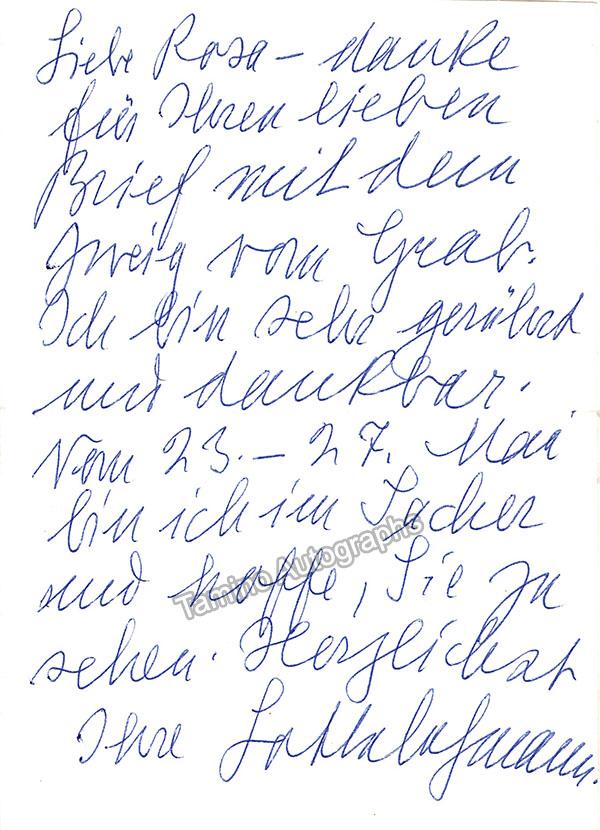 Liebe Rosa – danke
für Ihren lieben
Brief mit dem
Zweig vom Grab.
Ich bin sehr gerührt
und dankbar.
Vom 23. – 27. Mai
bin ich im Sacher
und hoffe, Sie zu
sehen. Herzlichst
Ihre Lotte Lehmann.
Tamino Autographs